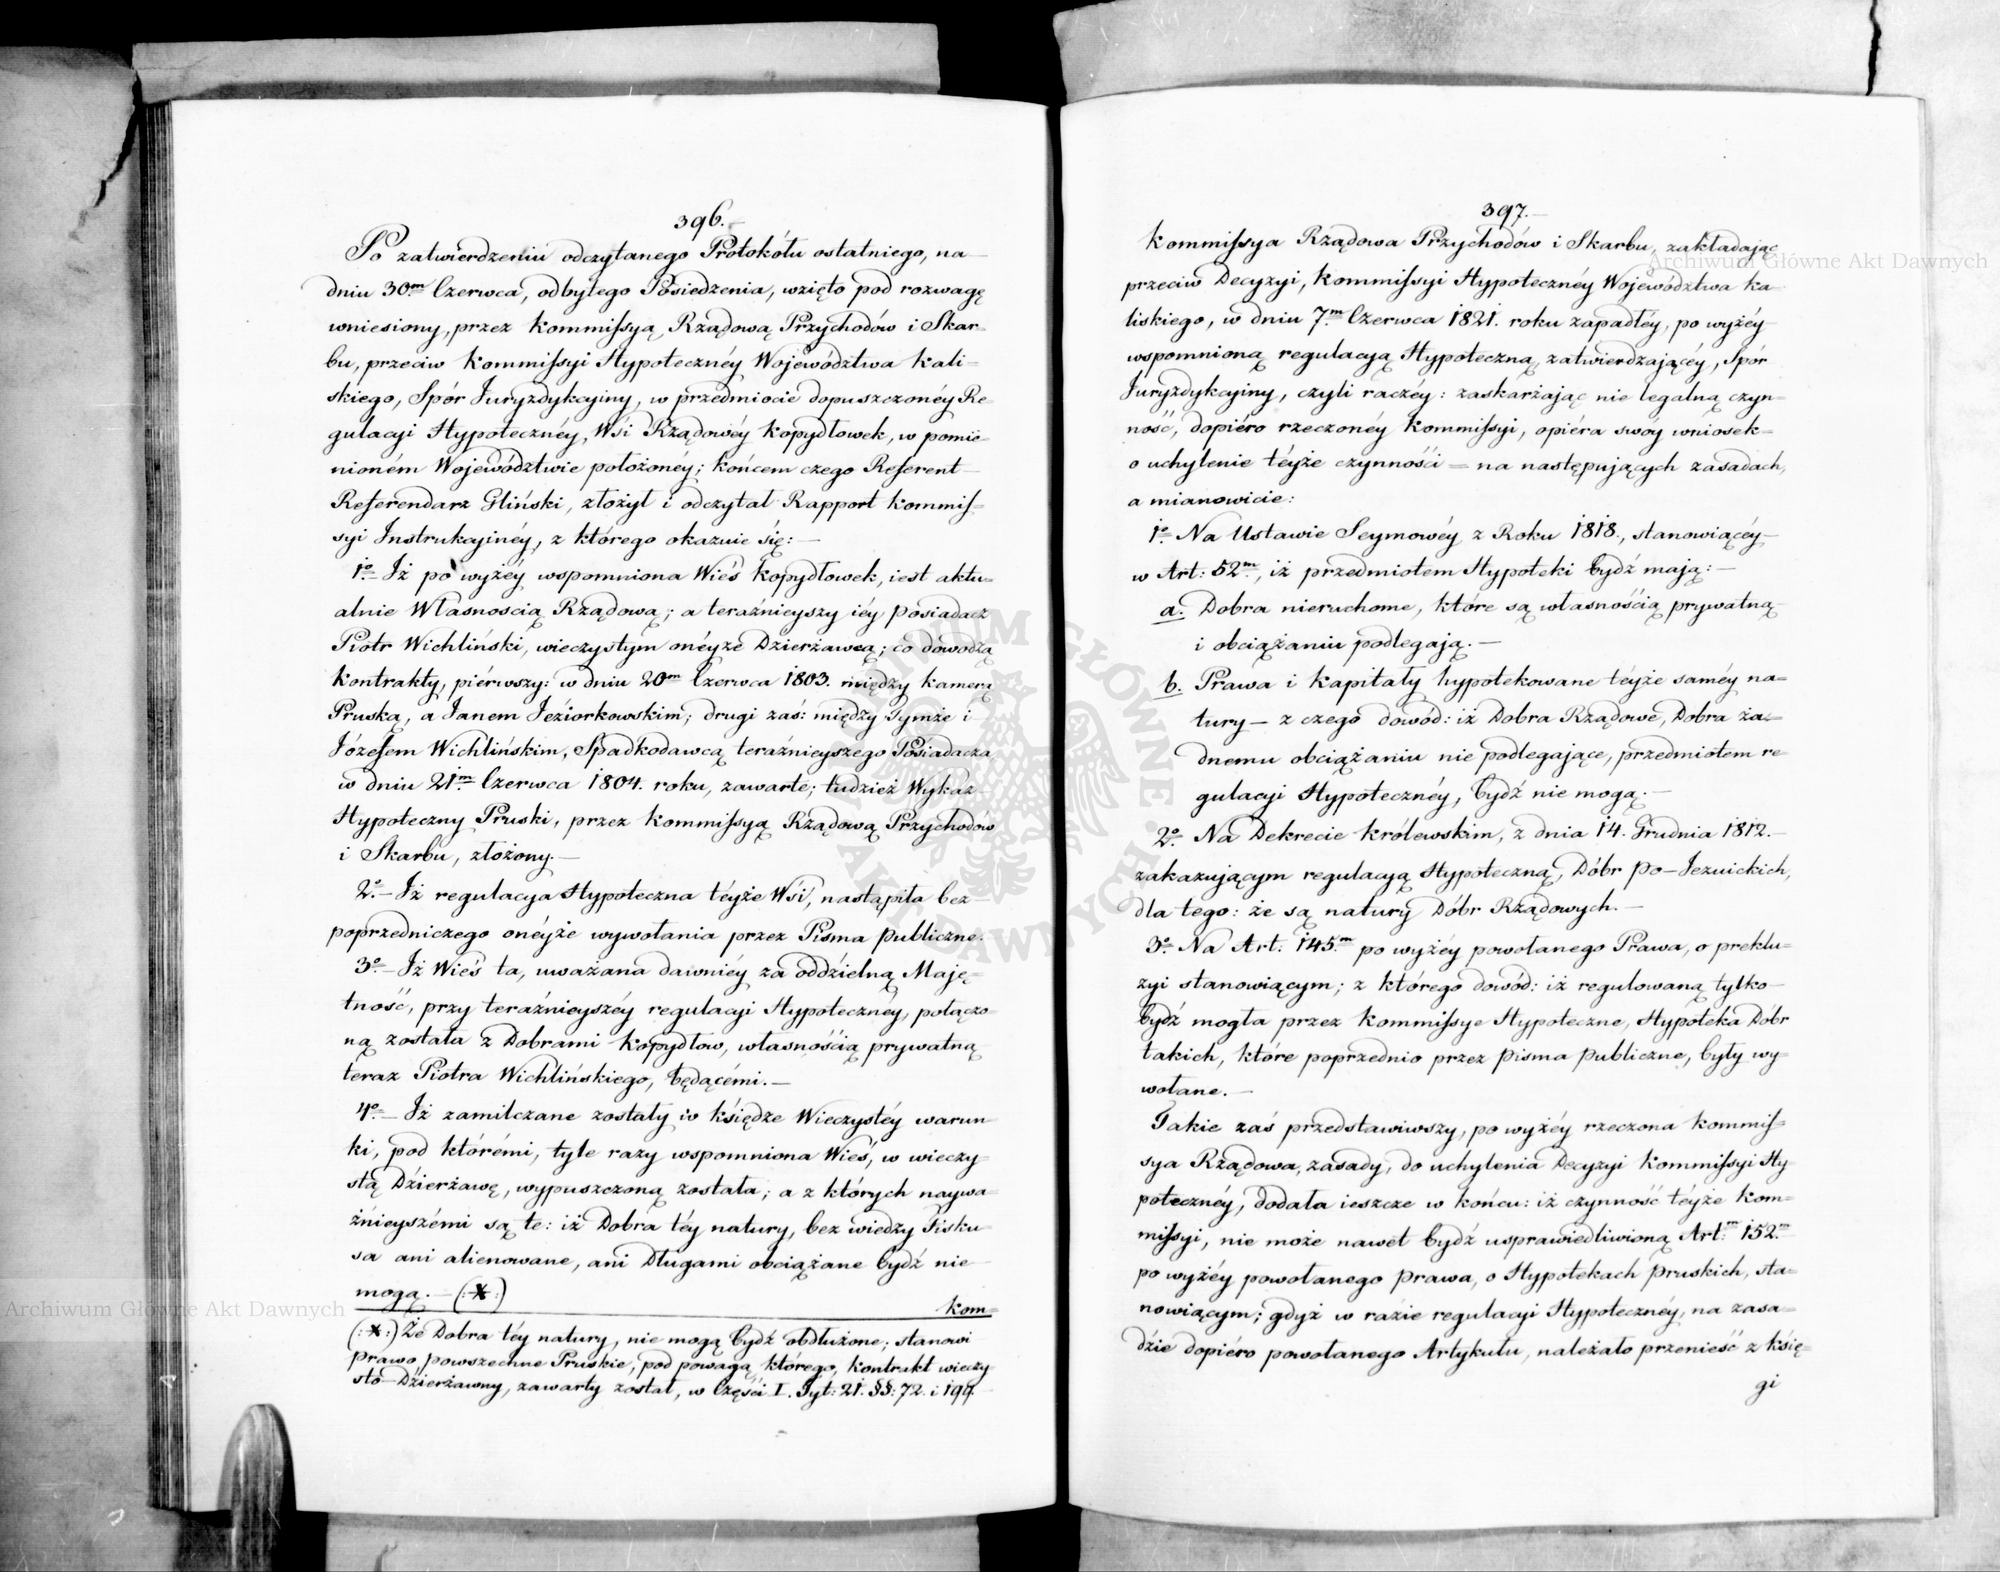 396.
Po zatwierdzeniu odczytanego Protokółu ostatniego, na
dniu 30m Czerwca, odbytego Posiedzenia, wzięto pod rozwagę
wniesiony, przez Kommissyą Rządową Przychodów i Skar-
bu, przeciw Kommissyi Hypotecznéy Województwa Kali-
skiego, Spór Juryzdykcyiny, w przedmiocie dopuszczonéy Re-
gulacyi Hypotecznéy, Wsi Rządowéy Kopydłowek, w pomie-
nioném Województwie położonéy; końcem czego Referent
Referendarz Gliński, złożył i odczytał Rapport Kommis-
syi Instrukcyinéy, z którego okazuie się: —
1o Iż po wyżéy wspomniona Wieś Kopydłowek, iest aktu-
alnie Własnoscią Rządową; a teraźnieyszy iéy Posiadacz
Piotr Wichliński, wieczystym onéyże Dzierżawcą; co dowodzą
Kontrakty, piérwszy: w dniu 20m Czerwca 1803. między Kamerą
Pruską, a Janem Jeziorkowskim; drugi zaś: między Tymże i
Józefem Wichlińskim, Spadkodawcą teraźnieyszego Posiadacza
w dniu 21m Czerwca 1804. roku, zawarte; tudzież Wykaz
Hypoteczny Pruski, przez Kommissyą Rządową Przychodów
i Skarbu, złożony. —
2o — Iż regulacya Hypoteczna téyże Wsi, nastąpiła bez
poprzedniczego onéyże wywołania przez Pisma Publiczne.
3o — Iż Wieś ta, uważana dawniéy za oddzielną Maję-
tność, przy teraźnieyszéy regulacyi Hypotecznéy, połączo-
ną została z Dobrami Kopydłow, własnością prywatną
teraz Piotra Wichlińskiego, będącémi. —
4o — Iż zamilczane zostały w księdze Wieczystéy warun-
ki, pod którémi, tyle razy wspomniona Wieś, w wieczy-
stą Dzierżawę, wypuszczoną została; a z których naywa-
żnieyszémi są te: iż Dobra téy natury, bez wiedzy Fisku-
sa ani alienowane, ani Długami obciążane bydź nie
mogą. — (:*:)
Kom=
(:*:) Że Dobra téy natury, nie mogą bydź obdłużone; stanowi
Prawo powszechne Pruskie, pod powagą którego, Kontrakt wieczy-
sto-Dzierżawny, zawarty został, w Części I. Tyt: 21. §§: 72. i 199.
397.
Kommissya Rządowa Przychodów i Skarbu, zakładając
przeciw Decyzyi, Kommissyi Hypotecznéy Województwa Ka-
liskiego, w dniu 7m Czerwca 1821. roku zapadłéy, po wyżéy
wspomnioną regulacyą Hypoteczną, zatwierdzającéy, Spór
Juryzdykcyiny, czyli raczéy: zaskarżając nie legalną czyn-
ność, dopiéro rzeczonéy Kommissyi, opiéra swoy wniosek
o uchylenie téyże czynności = na następujących zasadach,
a mianowicie:
1o Na Ustawie Seymowéy z Roku 1818., stanowiącéy
w Art: 52m, iż przedmiotem Hypoteki bydź mają: —
a. Dobra nieruchome, które są własnością prywatną
i obciążaniu podlegają. —
b. Prawa i Kapitały hypotekowane téyże saméy na-
tury — z czego dowód: iż Dobra Rządowe, Dobra ża-
dnemu obciążaniu nie podlegające, przedmiotem re-
gulacyi Hypotecznéy, bydź nie mogą. —
2o Na Dekrecie Królewskim, z dnia 14. Grudnia 1812. —
zakazującym regulacyą Hypoteczną, Dóbr po-Jezuickich,
dla tego: że są natury Dóbr Rządowych. —
3o Na Art: 145m po wyżéy powołanego Prawa, o preklu-
zyi stanowiącym; z którego dowód: iż regulowaną tylko
bydź mogła przez Kommissye Hypoteczne, Hypoteka Dóbr
takich, które poprzednio przez Pisma Publiczne, były wy-
wołane. —
Takie zaś przedstawiwszy, po wyżéy rzeczona Kommis-
sya Rządowa, zasady, do uchylenia Decyzyi Kommissyi Hy-
potecznéy, dodała ieszcze w końcu: iż czynność téyże Kom-
missyi, nie może nawet bydź usprawiedliwioną Art:m 152m
po wyżéy powołanego Prawa, o Hypotekach Pruskich, sta-
nowiącym; gdyż w razie regulacyi Hypotecznéy, na zasa-
dzie dopiéro powołanego Artykułu, należało przenieść z księ-
gi
Archiwum Główne Akt Dawnych
Archiwum Główne Akt Dawnych
ARCHIWUM GŁÓWNE AKT DAWNYCH